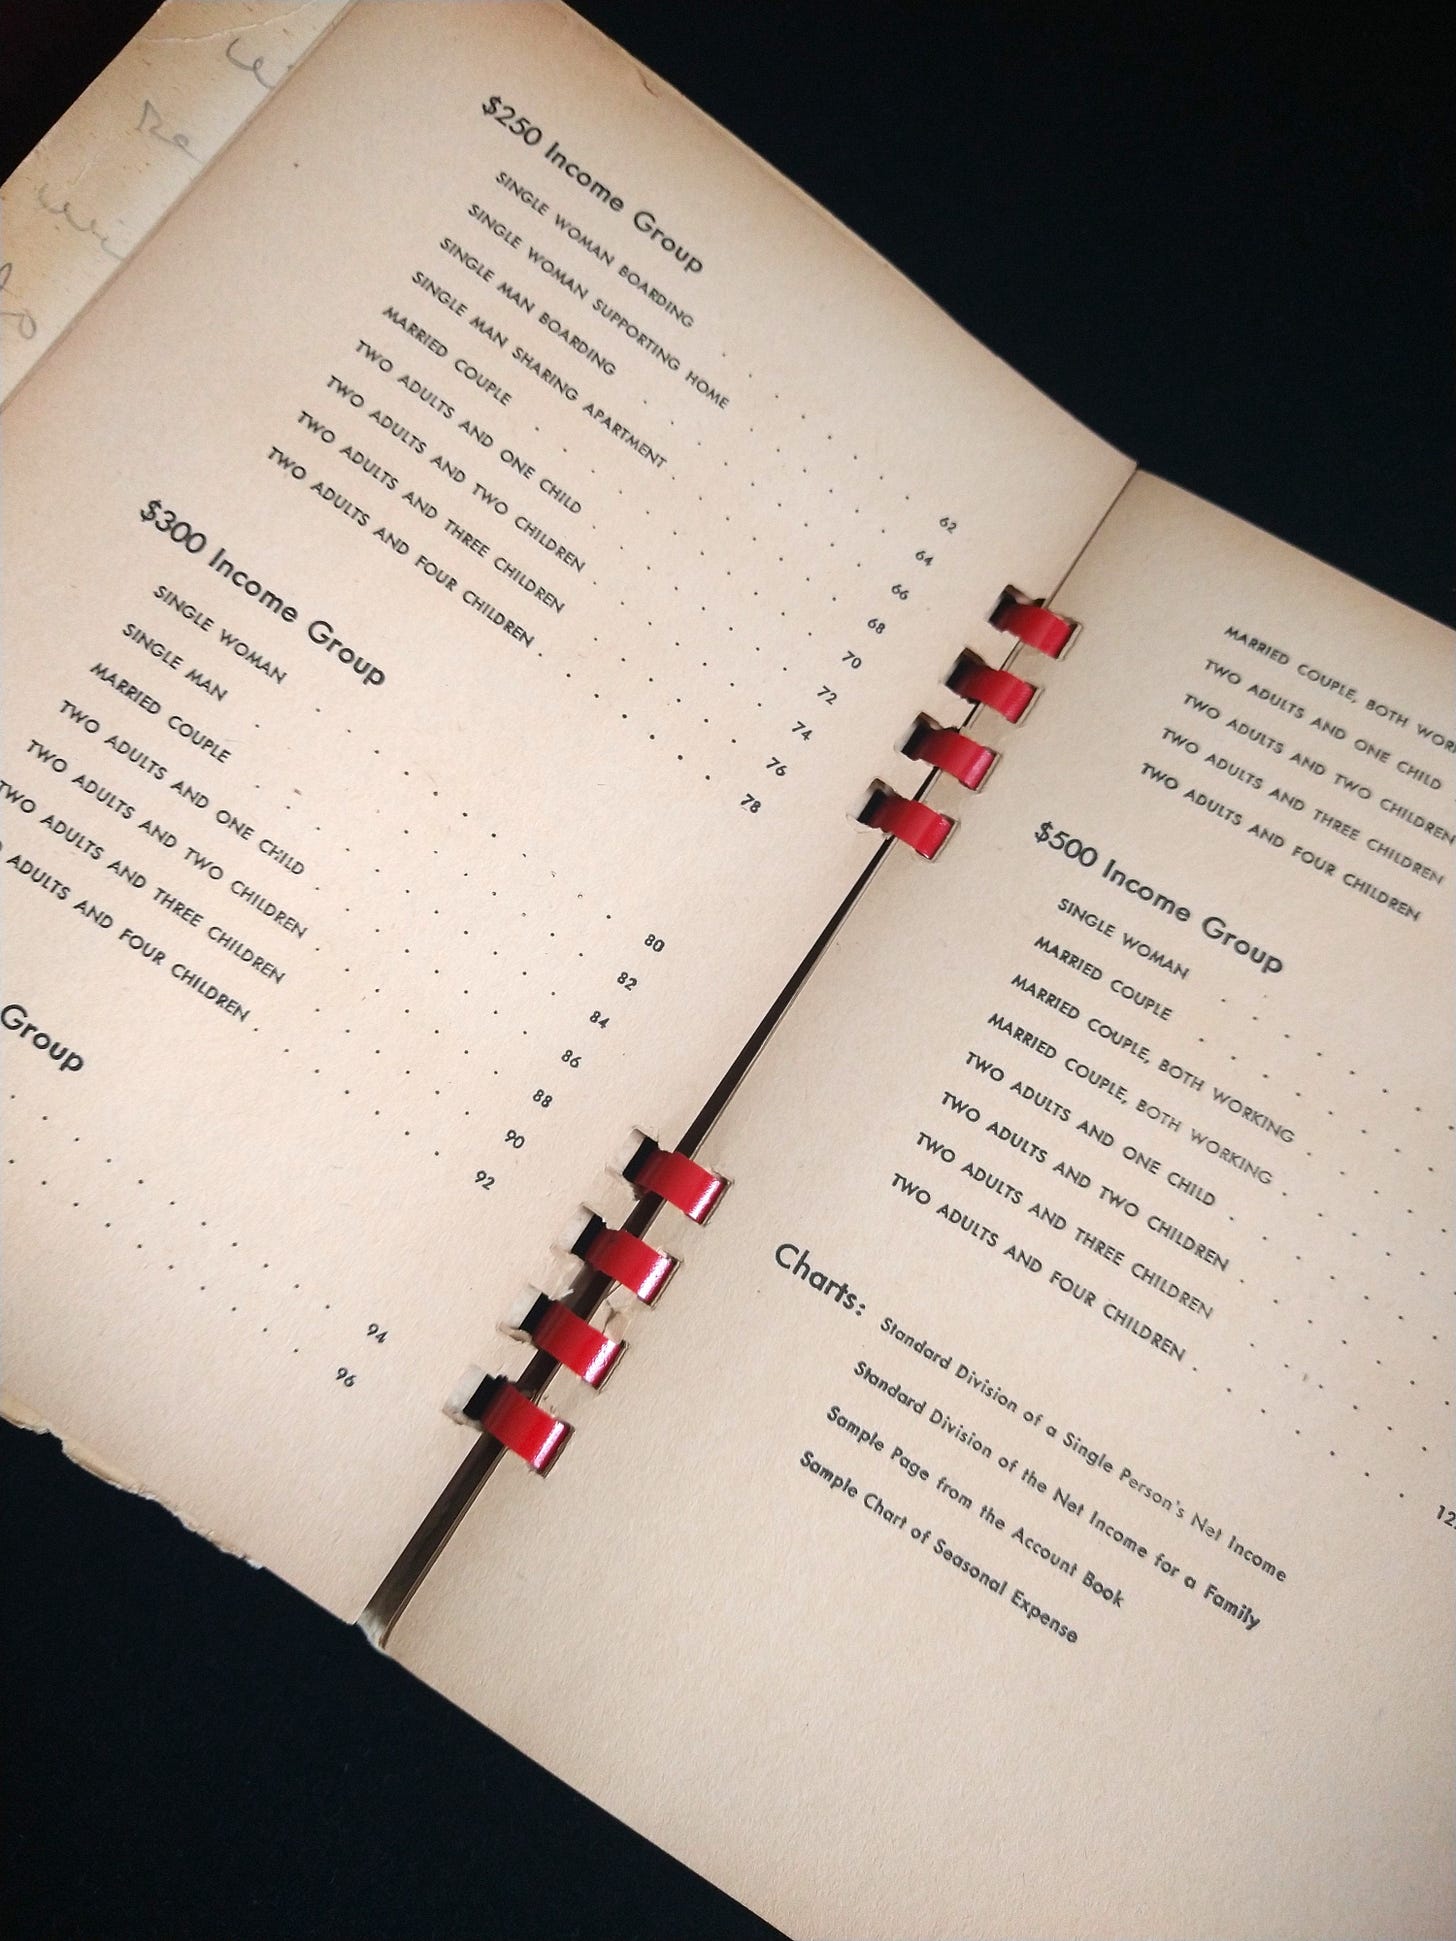 $250 Income Group
SINGLE WOMAN BOARDING . . . . . . . 62
SINGLE WOMAN SUPPORTING HOME . . . . . . 64
SINGLE MAN BOARDING . . . . . . . . 66
SINGLE MAN SHARING APARTMENT . . . . . . 68
MARRIED COUPLE . . . . . . . . . 70
TWO ADULTS AND ONE CHILD . . . . . . . 72
TWO ADULTS AND TWO CHILDREN . . . . . . 74
TWO ADULTS AND THREE CHILDREN . . . . . . 76
TWO ADULTS AND FOUR CHILDREN . . . . . . 78
$300 Income Group
SINGLE WOMAN . . . . . . . . . 80
SINGLE MAN . . . . . . . . . . 82
MARRIED COUPLE . . . . . . . . . 84
TWO ADULTS AND ONE CHILD . . . . . . . 86
TWO ADULTS AND TWO CHILDREN . . . . . . 88
TWO ADULTS AND THREE CHILDREN . . . . . . 90
ADULTS AND FOUR CHILDREN . . . . . . 92
Group
. . . . . . . . 94
. . . . . . . . 96
MARRIED COUPLE, BOTH
TWO ADULTS AND ONE CHILD
TWO ADULTS AND TWO CHILDREN
TWO ADULTS AND THREE CHILDREN
TWO ADULTS AND FOUR CHILDREN
$500 Income Group
SINGLE WOMAN
MARRIED COUPLE
MARRIED COUPLE, BOTH WORKING
MARRIED COUPLE, BOTH WORKING
TWO ADULTS AND ONE CHILD
TWO ADULTS AND TWO CHILDREN
TWO ADULTS AND THREE CHILDREN
TWO ADULTS AND FOUR CHILDREN
Charts:
Standard Division of a Single Person's Net Income
Standard Division of the Net Income for a Family
Sample Page from the Account Book
Sample Chart of Seasonal Expense